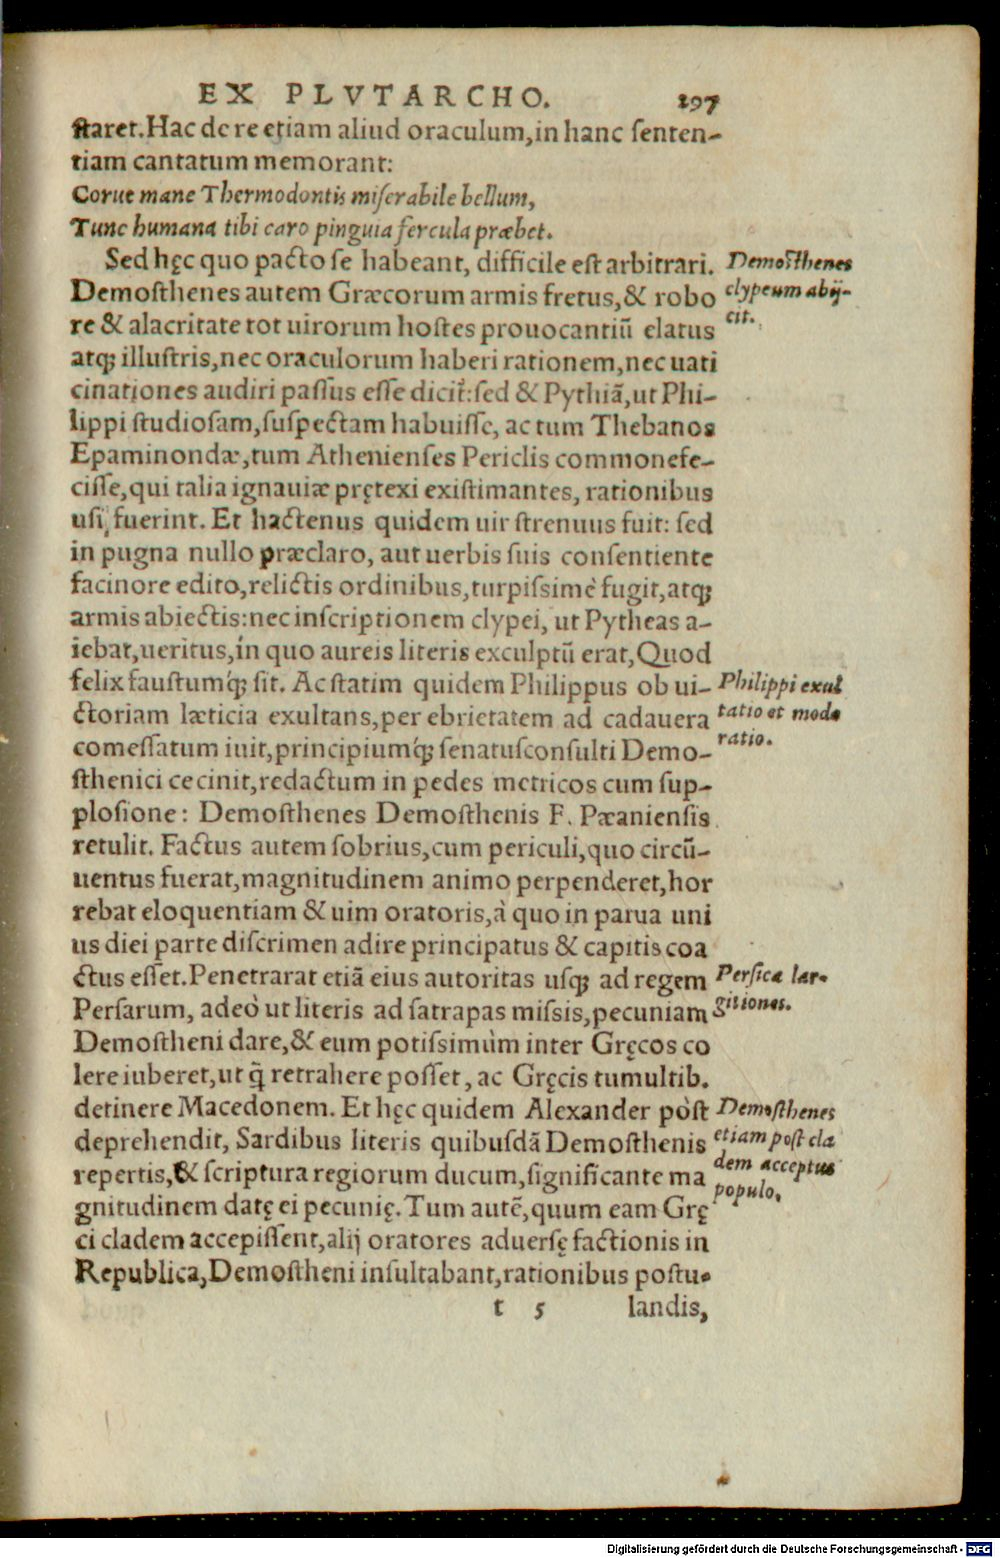 EX PLVTARCHO. 297
staret. Hac de re etiam aliud oraculum, in hanc senten-
tiam cantatum memorant:
Corue mane Thermodontis miserabile bellum,
Tunc humana tibi caro pinguia fercula præbet.
Sed hęc quo pacto se habeant, difficile est arbitrari.
Demosthenes autem Græcorum armis fretus, & robo
re & alacritate tot uirorum hostes prouocantiũ elatus
atq; illustris, nec oraculorum haberi rationem, nec uati
cinationes audiri passus esse dicit̃: sed & Pythiã, ut Phi-
lippi studiosam, suspectam habuisse, ac tum Thebanos
Epaminondæ, tum Athenienses Periclis commonefe-
cisse, qui talia ignauiæ prętexi existimantes, rationibus
usi fuerint. Et hactenus quidem uir strenuus fuit: sed
in pugna nullo præclaro, aut uerbis suis consentiente
facinore edito, relictis ordinibus, turpissimè fugit, atq;
armis abiectis: nec inscriptionem clypei, ut Pytheas a-
iebat, ueritus, in quo aureis literis exculptũ erat, Quod
felix faustumq́; sit. Ac statim quidem Philippus ob ui-
ctoriam læticia exultans, per ebrietatem ad cadauera
comessatum iuit, principiumq́; senatusconsulti Demo-
sthenici cecinit, redactum in pedes metricos cum sup-
plosione: Demosthenes Demosthenis F. Pæaniensis
retulit. Factus autem sobrius, cum periculi, quo circũ-
uentus fuerat, magnitudinem animo perpenderet, hor
rebat eloquentiam & uim oratoris, à quo in parua uni
us diei parte discrimen adire principatus & capitis coa
ctus esset. Penetrarat etiã eius autoritas usq; ad regem
Persarum, adeò ut literis ad satrapas missis, pecuniam
Demostheni dare, & eum potissimùm inter Gręcos co
lere iuberet, ut q̃ retrahere posset, ac Gręcis tumultib.
detinere Macedonem. Et hęc quidem Alexander pòst
deprehendit, Sardibus literis quibusdã Demosthenis
repertis, & scriptura regiorum ducum, significante ma
gnitudinem datę ei pecunię. Tum autẽ, quum eam Grę
ci cladem accepissent, alij oratores aduersę factionis in
Republica, Demostheni insultabant, rationibus postu-
t 5 landis,
Demosthenes
clypeum abij-
cit.
Philippi exul
tatio et mode
ratio.
Persicæ lar-
gitiones.
Demosthenes
etiam post cla
dem acceptus
populo.
Digitalisierung gefördert durch die Deutsche Forschungsgemeinschaft - DFG